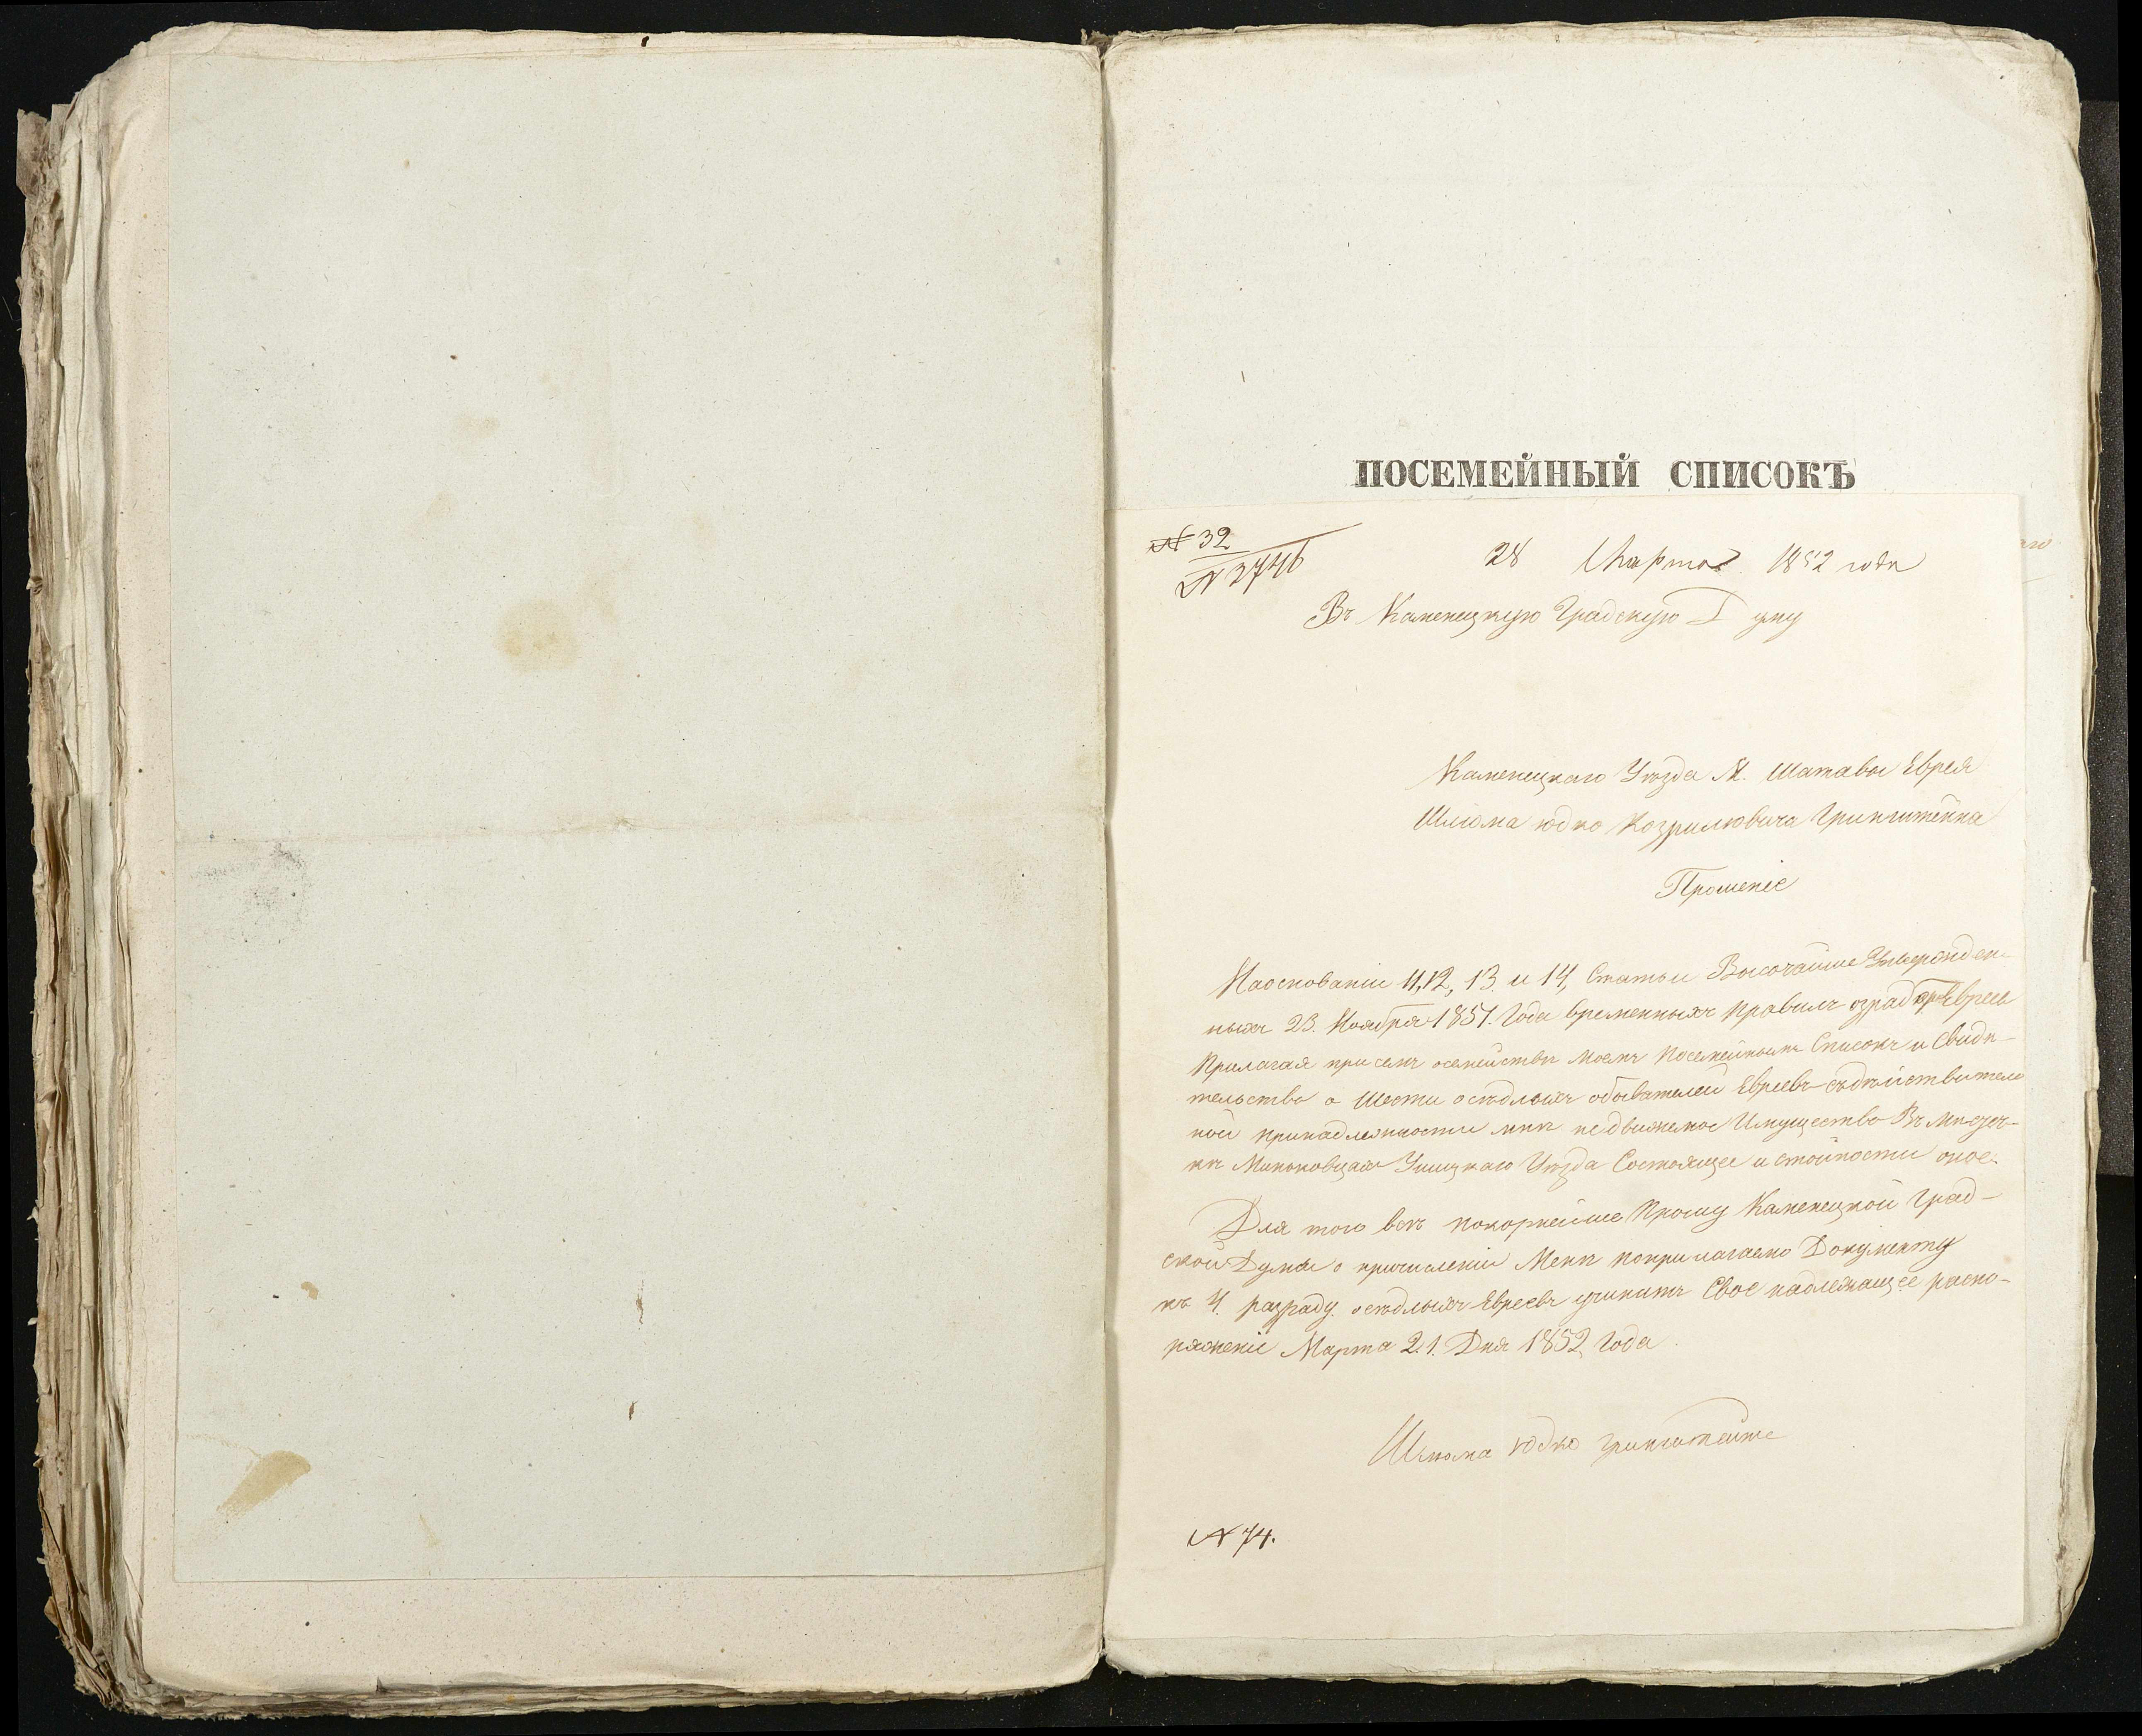 ПОСЕМЕЙНЫЙ СПИСОКЪ
№ 32
№ 3746
28 Марта 1852 года
Въ Каменецкую Градскую Думу
Каменецкаго Уѣзда М. Шатавы Еврея
Шлiома Юдко Гринштейна
Прошенiе
На основанiи 11, 12, 13. и 14, Статьи Высочайше Утвержден-
ныхъ 23. Ноября 1851. Года временныхъ правилъ Евреевъ
Прилагая при семъ о семействѣ моемъ Посемейнымъ Списокъ и Свидѣ-
тельство о Шести осѣдлыхъ обывателей Евреевъ
ной принадлежности мнѣ недвижемое Имущество Въ Мѣстеч-
кѣ Миньковцахъ Ушицкаго Уѣзда Состоящее и стоимости оное.
Для того всѣ покорнейше Прошу Каменецкой Град-
ской Думы о причисленiи Менѣ поприлагаемо Документу
къ 4. разраду осѣдлыхъ Евреевъ учинитъ Свое надлежащее распо-
ряженiе Марта 21. Дня 1852 Года
Шлома Юдко
№ 74.